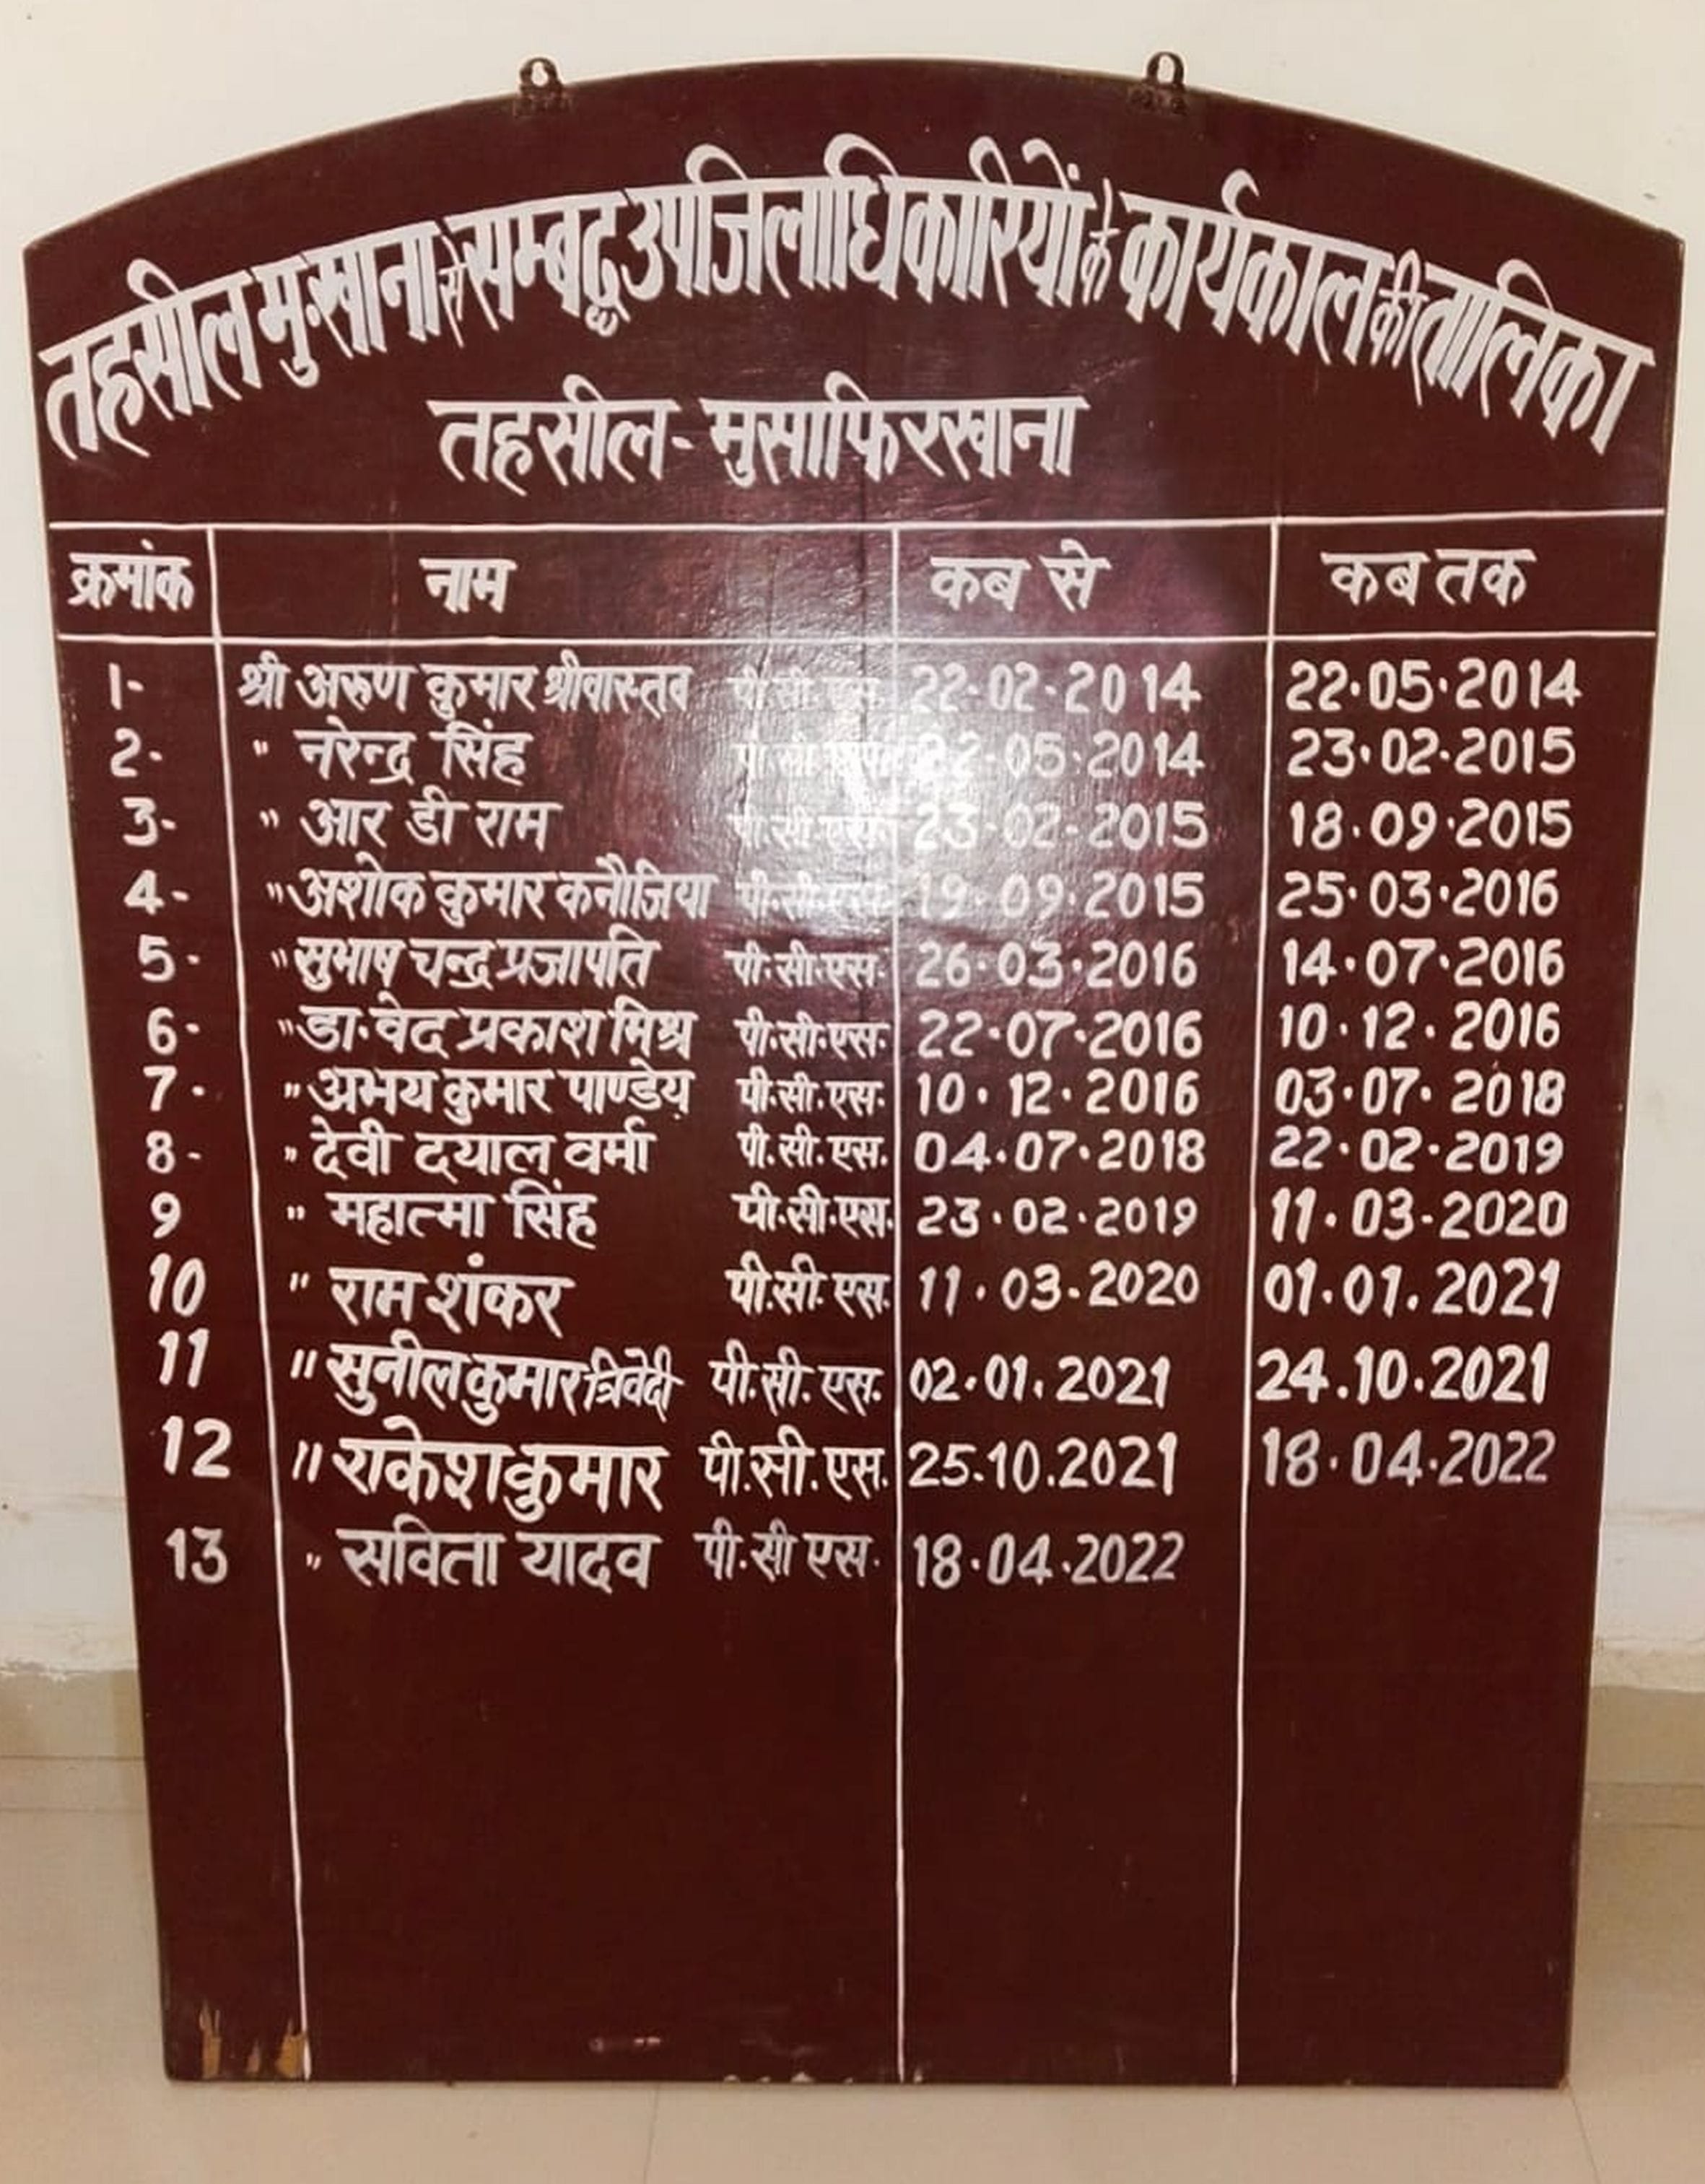 तहसील मु.खाना से सम्बद्ध उपजिलाधिकारियों के कार्यकाल की तालिका
तहसील - मुसाफिरखाना
क्रमांक नाम कब से कब तक
1- श्री अरुण कुमार श्रीवास्तव पी.सी.एस. 22.02.2014 22.05.2014
2- " नरेन्द्र सिंह पी.सी.एस. 22.05.2014 23.02.2015
3- " आर डी राम पी.सी.एस. 23.02.2015 18.09.2015
4- " अशोक कुमार कनौजिया पी.सी.एस. 19.09.2015 25.03.2016
5- " सुभाष चन्द्र प्रजापति पी.सी.एस. 26.03.2016 14.07.2016
6- " डा. वेद प्रकाश मिश्र पी.सी.एस. 22.07.2016 10.12.2016
7- " अभय कुमार पाण्डेय पी.सी.एस. 10.12.2016 03.07.2018
8- " देवी दयाल वर्मा पी.सी.एस. 04.07.2018 22.02.2019
9 " महात्मा सिंह पी.सी.एस. 23.02.2019 11.03-2020
10 " राम शंकर पी.सी.एस. 11.03.2020 01.01.2021
11 " सुनील कुमार त्रिवेदी पी.सी.एस. 02.01.2021 24.10.2021
12 " राकेश कुमार पी.सी.एस. 25.10.2021 18.04.2022
13 " सविता यादव पी.सी एस. 18.04.2022